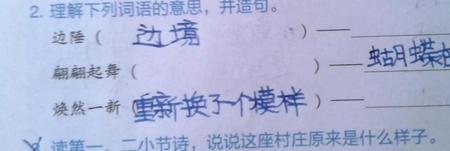 2. 理解下列词语的意思，并造句。
边陲（ 边境 ）——
翩翩起舞（ ）—— 蝴蝶
焕然一新（重新换了个模样）——
读第一、二小节诗，说说这座村庄原来是什么样子。